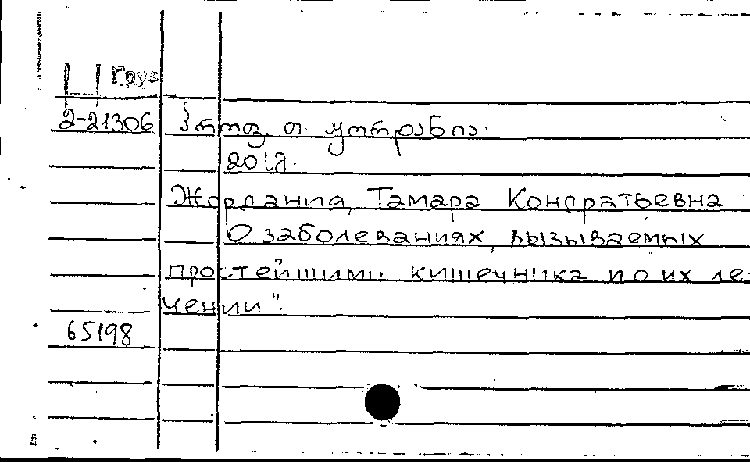 Груз
2-21306
პროფ. თ. ჟორდანია.
Жордания, Тамара Кондратьевна
О заболеваниях, вызываемых
простейшими кишечника и о их ле-
чении".
65198